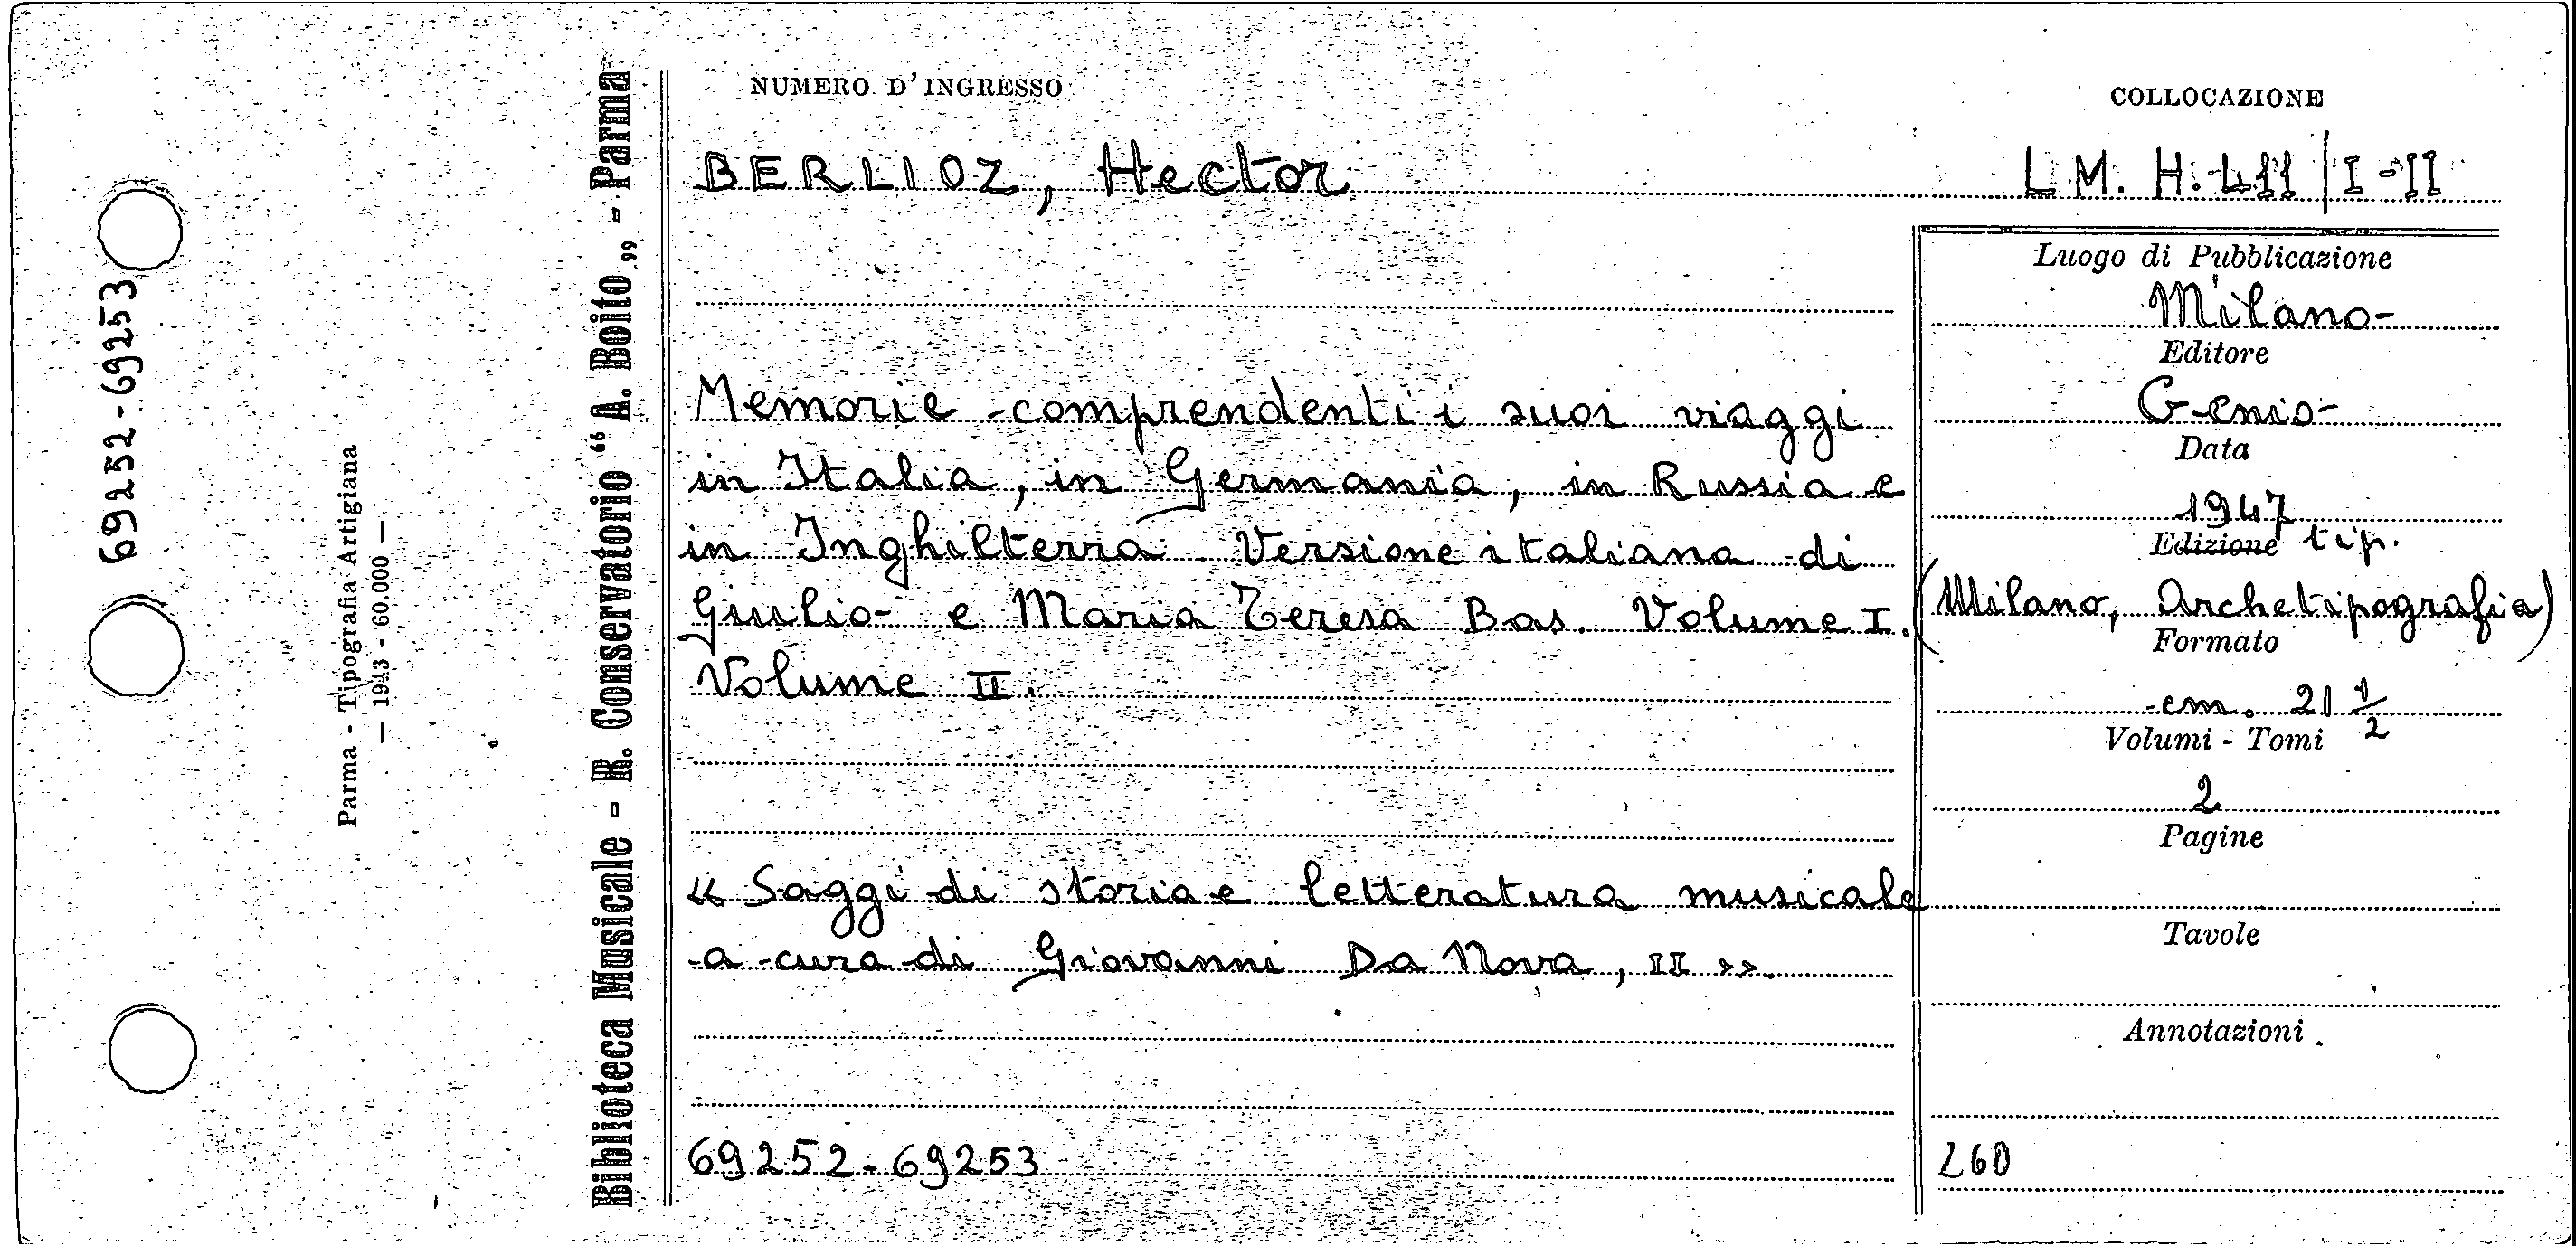 69252-69253
Parma - Tipografia Artigiana
— 1943 - 60.000 —
Biblioteca Musicale - R. Conservatorio “A. Boito„ - Parma
NUMERO D'INGRESSO
COLLOCAZIONE
BERLIOZ, Hector
L M. H. 411 | I-II
Luogo di Pubblicazione
Milano
Editore
Genio
Data
1947
Edizione tip.
(Milano, Archetipografia)
Formato
cm. 21 1/2
Volumi - Tomi
2
Pagine
Tavole
Annotazioni
Memorie comprendenti i suoi viaggi
in Italia, in Germania, in Russia e
in Inghilterra. Versione italiana di
Giulio e Maria Teresa Bas. Volume I.
Volume II.
« Saggi di storia e letteratura musicale
a cura di Giovanni Da Nova, II ».
69252-69253